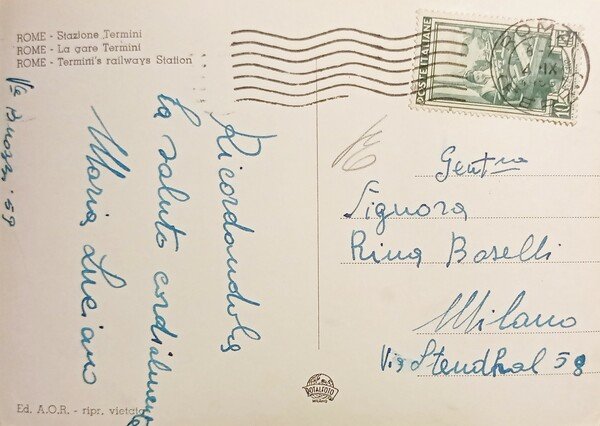 ROME - Stazione Termini
ROME - La gare Termini
ROME - Termini's railways Station
POSTE ITALIANE
ROMA
IX
Ricordandola
la saluto cordialmente
Maria Luciano
Gent.ma
Signora
Rina Boselli
Milano
Via Stendhal 58
ROTALFOTO
MILANO
Ed. A.O.R. - ripr. vietata